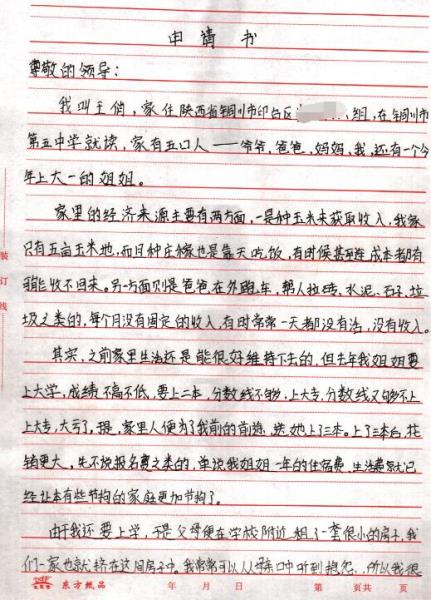 申请书
尊敬的领导:
我叫王俏,家住陕西省铜川市印台区组,在铜川市
第五中学就读,家有五口人——爷爷,爸爸,妈妈,我,还有一个今
年上大一的姐姐。
家里的经济来源主要有两方面,一是种玉米来获取收入,我家
只有五亩玉米地,而且种庄稼也是靠天吃饭,有时候甚至连成本都有
可能收不回来。另一方面则是爸爸在外跑车,帮人拉砖、水泥、石子、垃
圾之类的,每个月没有固定的收入,有时常常一天都没有活,没有收入。
其实,之前家里生活还是能很好维持下去的,但去年我姐姐要
上大学,成绩不高不低,要上二本,分数线不够,上大专,分数线又够不上
上大专,大亏了。家里人便为了我前的前途,送她上了三本。上了三本后,花
销更大。先不说报名费之类的,单说我姐姐一年的住宿费、生活费就已
经让本有些节拘的家庭更加节拘了。
由于我还要上学,于是父母便在学校附近租了一套很小的房子,我
们一家也就挤在这间房子中。我常常可以从母亲口中听到抱怨,所以我很
装订线
东方纸品 年 月 日 第 页共 页